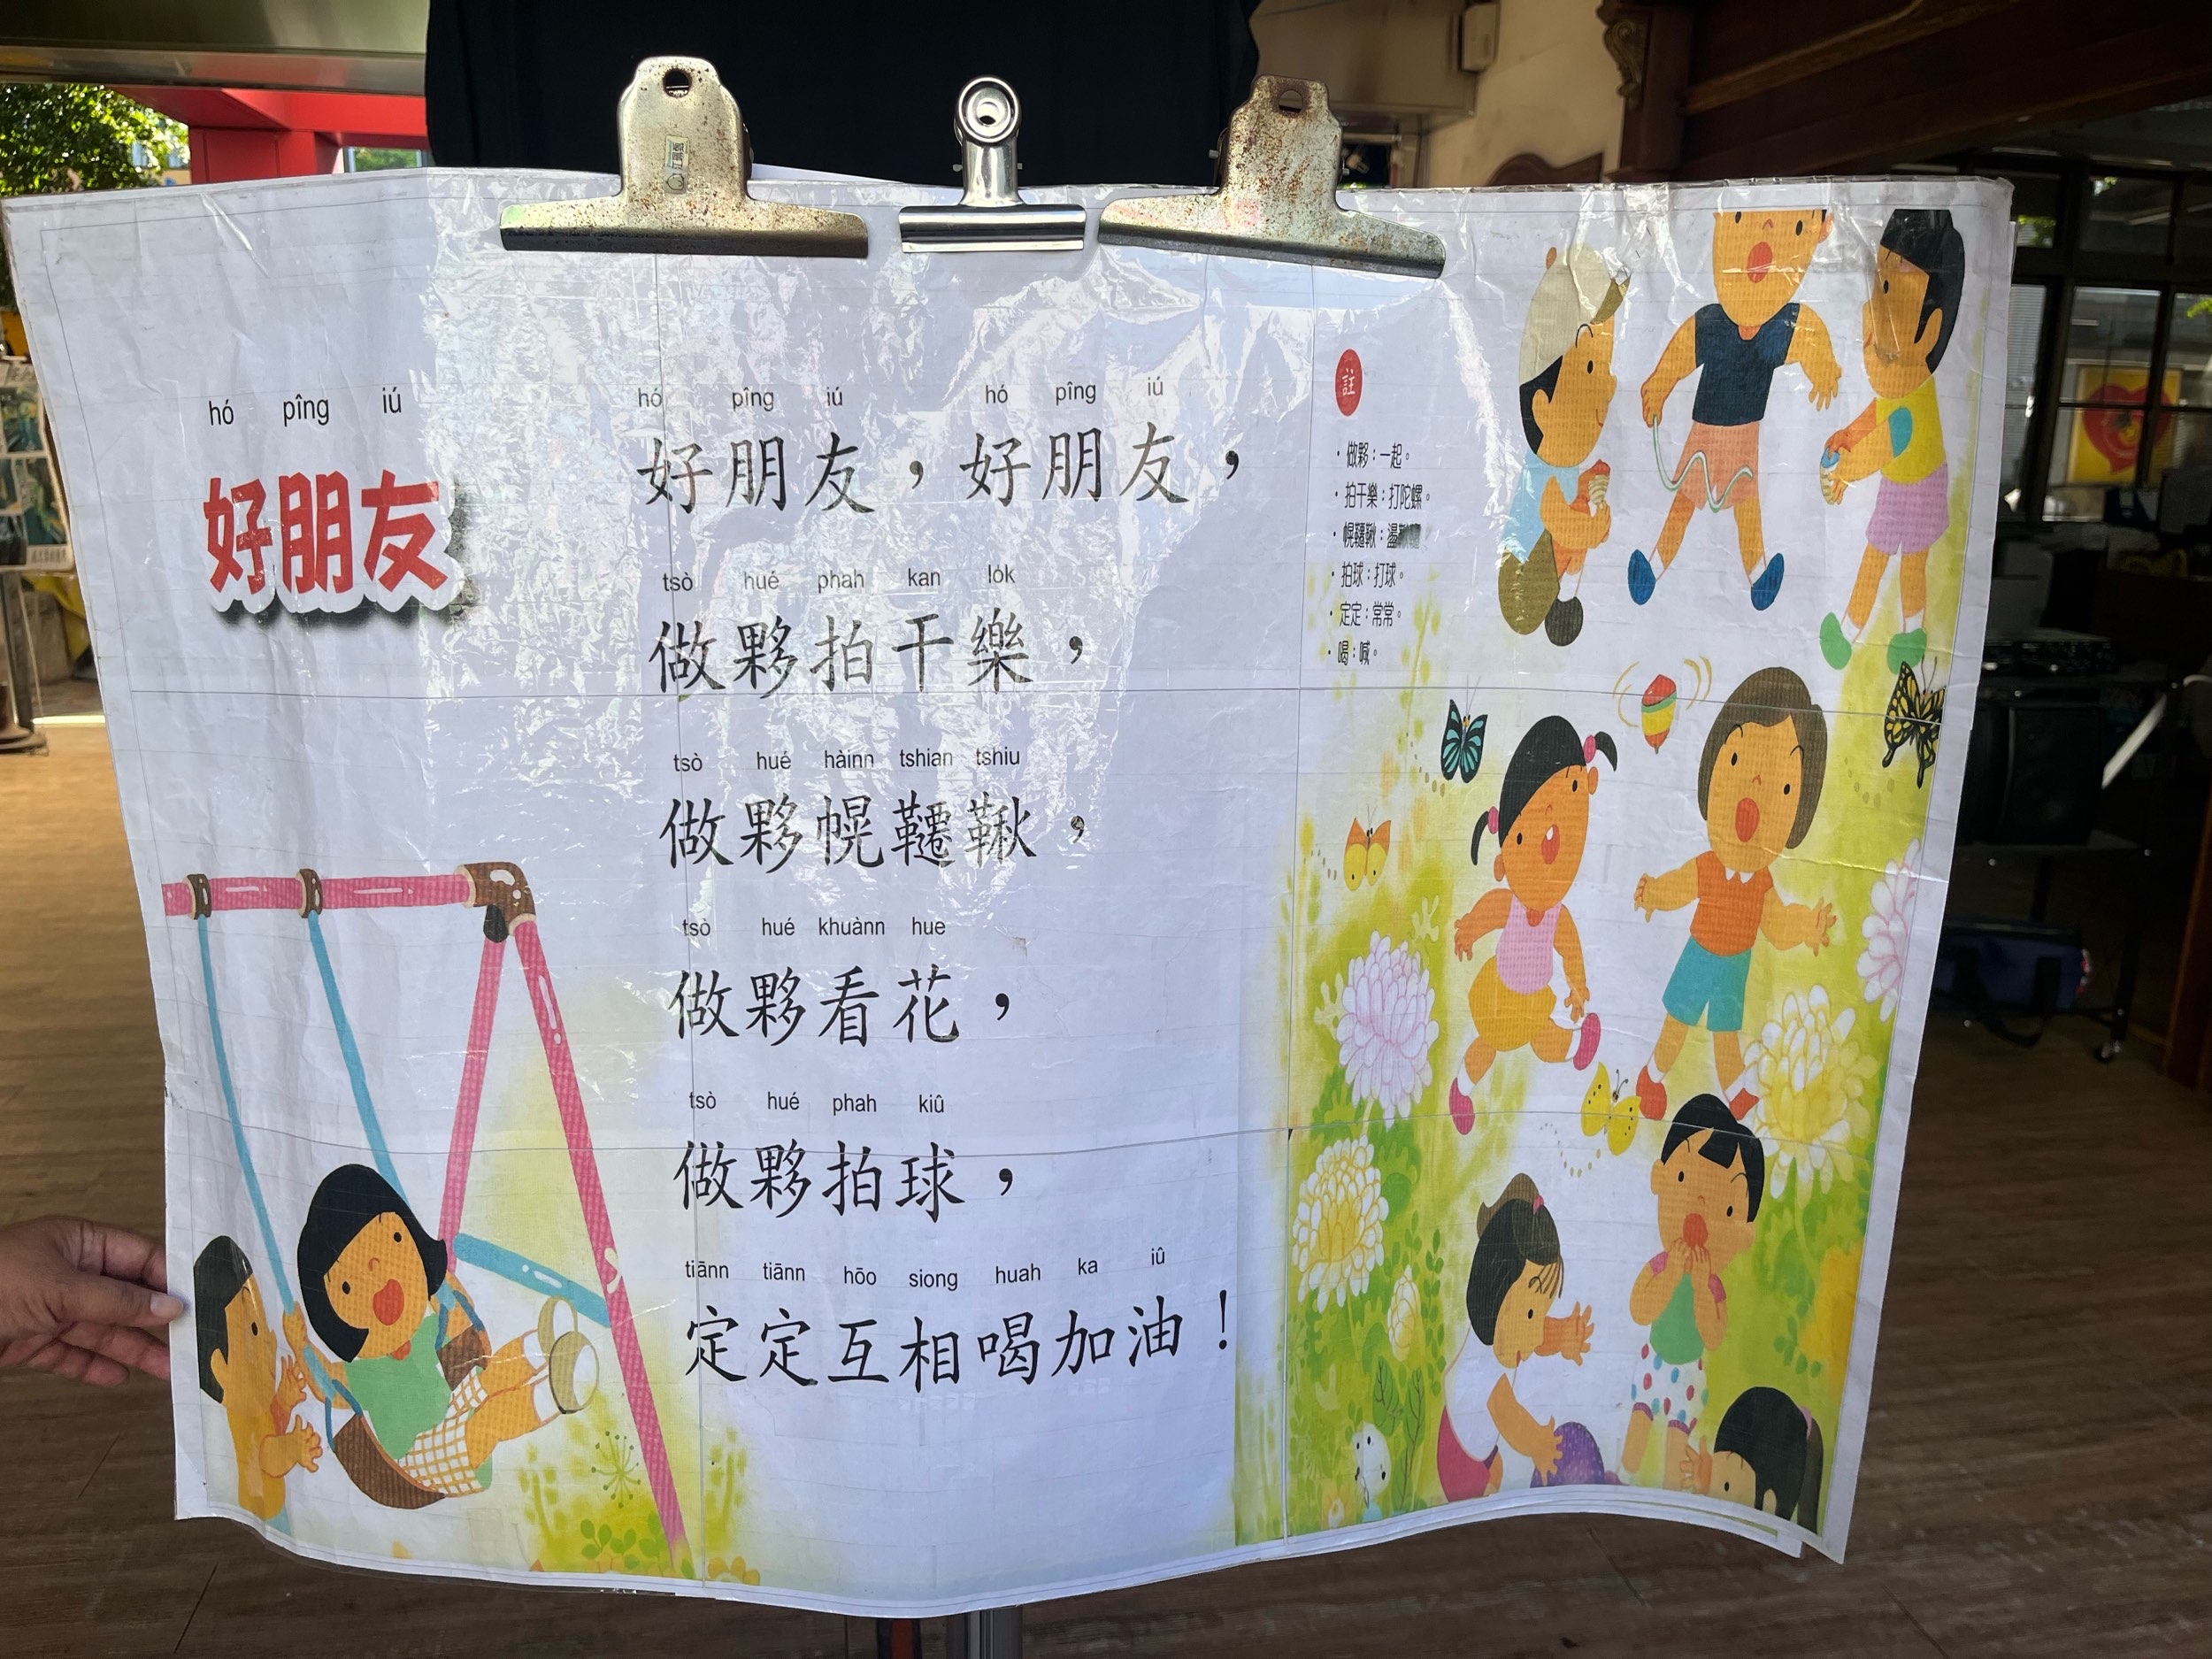 hó pîng iú
好朋友
hó pîng iú hó pîng iú
好朋友，好朋友，
tsò hué phah kan lo̍k
做夥拍干樂，
tsò hué hàinn tshian tshiu
做夥幌韆鞦，
tsò hué khuànn hue
做夥看花，
tsò hué phah kiû
做夥拍球，
tiānn tiānn hōo siong huah ka iû
定定互相喝加油！
註
・做夥：一起。
・拍干樂：打陀螺。
・幌韆鞦：盪
・拍球：打球。
・定定：常常。
・喝：喊。